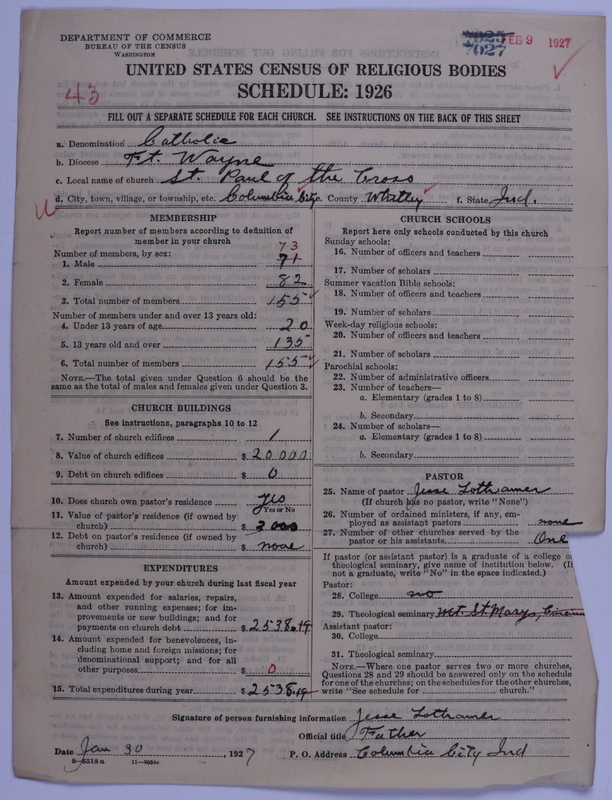 DEPARTMENT OF COMMERCE
BUREAU OF THE CENSUS
WASHINGTON
FEB 9 1927
UNITED STATES CENSUS OF RELIGIOUS BODIES
43
SCHEDULE: 1926
FILL OUT A SEPARATE SCHEDULE FOR EACH CHURCH. SEE INSTRUCTIONS ON THE BACK OF THIS SHEET
a. Denomination Catholic
b. Diocese Ft. Wayne
c. Local name of church St. Paul of the Cross
d. City, town, village, or township, etc. Columbia City e. County Whitley f. State Ind.
MEMBERSHIP
Report number of members according to definition of
member in your church
Number of members, by sex:
73
1. Male 71
2. Female 82
3. Total number of members 155
Number of members under and over 13 years old:
4. Under 13 years of age 20
5. 13 years old and over 135
6. Total number of members 155
NOTE.—The total given under Question 6 should be the
same as the total of males and females given under Question 3.
CHURCH BUILDINGS
See instructions, paragraphs 10 to 12
7. Number of church edifices 1
8. Value of church edifices $ 20,000
9. Debt on church edifices $ 0
10. Does church own pastor's residence yes
Yes or No
11. Value of pastor's residence (if owned by
church) $ 3000
12. Debt on pastor's residence (if owned by
church) $ none
EXPENDITURES
Amount expended by your church during last fiscal year
13. Amount expended for salaries, repairs,
and other running expenses; for im-
provements or new buildings; and for
payments on church debt $ 2538.49
14. Amount expended for benevolences, in-
cluding home and foreign missions; for
denominational support; and for all
other purposes $ 0
15. Total expenditures during year $ 2538.49
CHURCH SCHOOLS
Report here only schools conducted by this church
Sunday schools:
16. Number of officers and teachers
17. Number of scholars
Summer vacation Bible schools:
18. Number of officers and teachers
19. Number of scholars
Week-day religious schools:
20. Number of officers and teachers
21. Number of scholars
Parochial schools:
22. Number of administrative officers
23. Number of teachers—
a. Elementary (grades 1 to 8)
b. Secondary
24. Number of scholars—
a. Elementary (grades 1 to 8)
b. Secondary
PASTOR
25. Name of pastor Jesse Lothamer
(If church has no pastor, write "None")
26. Number of ordained ministers, if any, em-
ployed as assistant pastors none
27. Number of other churches served by the
pastor or his assistants One
If pastor (or assistant pastor) is a graduate of a college o
theological seminary, give name of institution below. (If
not a graduate, write "No" in the space indicated.)
Pastor:
28. College no
29. Theological seminary Mt. St. Marys,
Assistant pastor:
30. College
31. Theological seminary
NOTE.—Where one pastor serves two or more churches,
Questions 28 and 29 should be answered only on the schedule
for one of the churches; on the schedules for the other churches,
write "See schedule for church."
Signature of person furnishing information Jesse Lothamer
Official title Father
Date Jan 30 1927 P. O. Address Columbia City Ind
8—5518 a 11—9664a